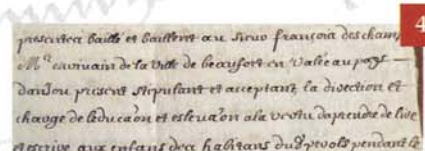 4
presentes baillé et baillent au sieur françois deschamp
M.e escrivain de la ville de beaufort en Valée au pays
danJou present stipulant et acceptant la direction et
charge de leducaon et eslevaon a la vertu daprendre de lire
et escrire aux enfans des habitans du pendant le